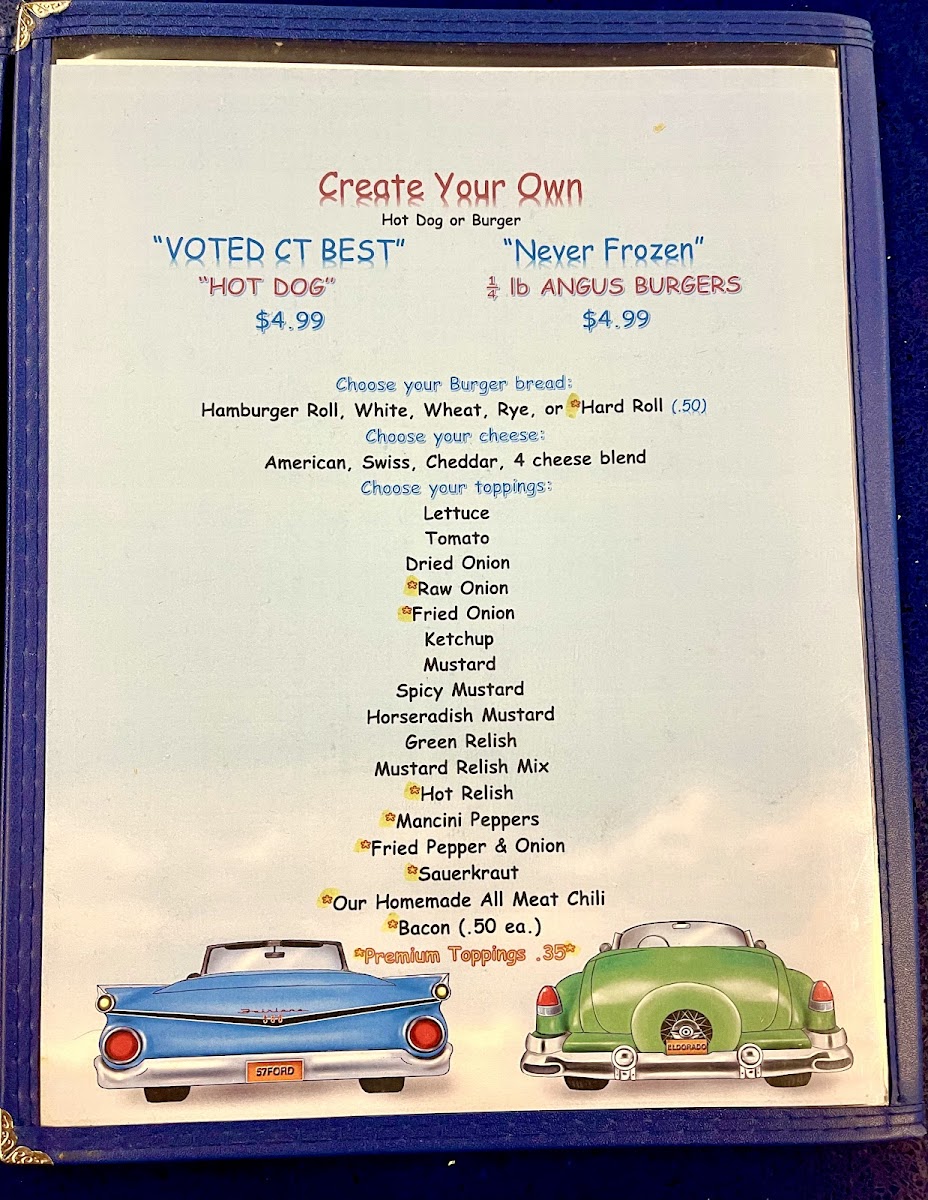 Create Your Own
Hot Dog or Burger
“VOTED CT BEST” “Never Frozen”
“HOT DOG” ¼ lb ANGUS BURGERS
$4.99 $4.99
Choose your Burger bread:
Hamburger Roll, White, Wheat, Rye, or *Hard Roll (.50)
Choose your cheese:
American, Swiss, Cheddar, 4 cheese blend
Choose your toppings:
Lettuce
Tomato
Dried Onion
*Raw Onion
*Fried Onion
Ketchup
Mustard
Spicy Mustard
Horseradish Mustard
Green Relish
Mustard Relish Mix
*Hot Relish
*Mancini Peppers
*Fried Pepper & Onion
*Sauerkraut
*Our Homemade All Meat Chili
*Bacon (.50 ea.)
*Premium Toppings .35*
57FORD
ELDORADO